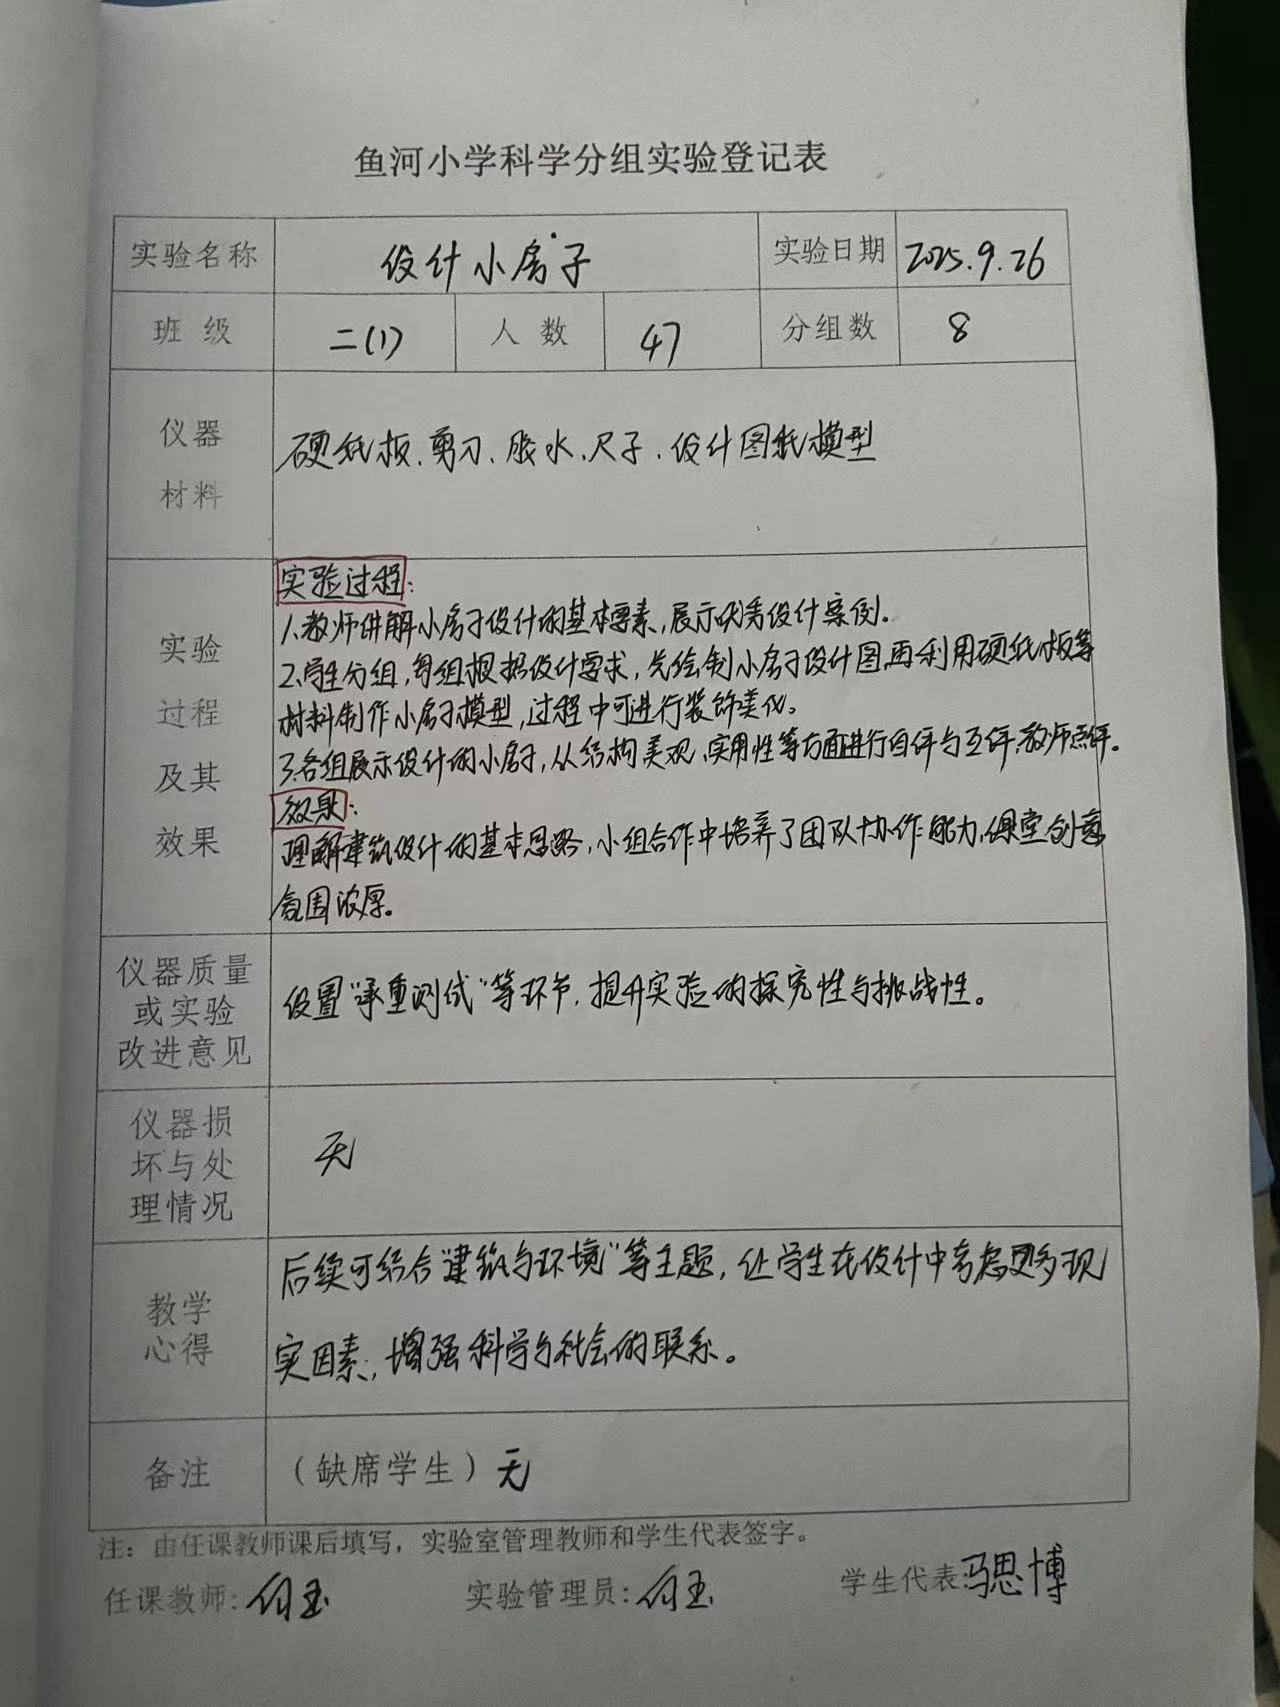 鱼河小学科学分组实验登记表
实验名称 设计小房子 实验日期 2025.9.26
班级 二(1) 人数 47 分组数 8
仪器
材料
硬纸板、剪刀、胶水、尺子、设计图纸模型
实验
过程
及其
效果
实验过程:
1.教师讲解小房子设计的基本要素,展示优秀设计案例。
2.学生分组,每组根据设计要求,先绘制小房子设计图,再利用硬纸板等
材料制作小房子模型,过程中可进行装饰美化。
3.各组展示设计的小房子,从结构美观、实用性等方面进行自评与互评,教师点评。
效果:
理解建筑设计的基本思路,小组合作中培养了团队协作能力,课堂创意
氛围浓厚。
仪器质量
或实验
改进意见
设置"承重测试"等环节,提升实验的探究性与挑战性。
仪器损
坏与处
理情况
无
教学
心得
后续可结合"建筑与环境"等主题,让学生在设计中考虑更多现
实因素,增强科学与社会的联系。
备注 (缺席学生)无
注:由任课教师课后填写,实验室管理教师和学生代表签字。
任课教师: 玉 实验管理员: 玉 学生代表: 思博